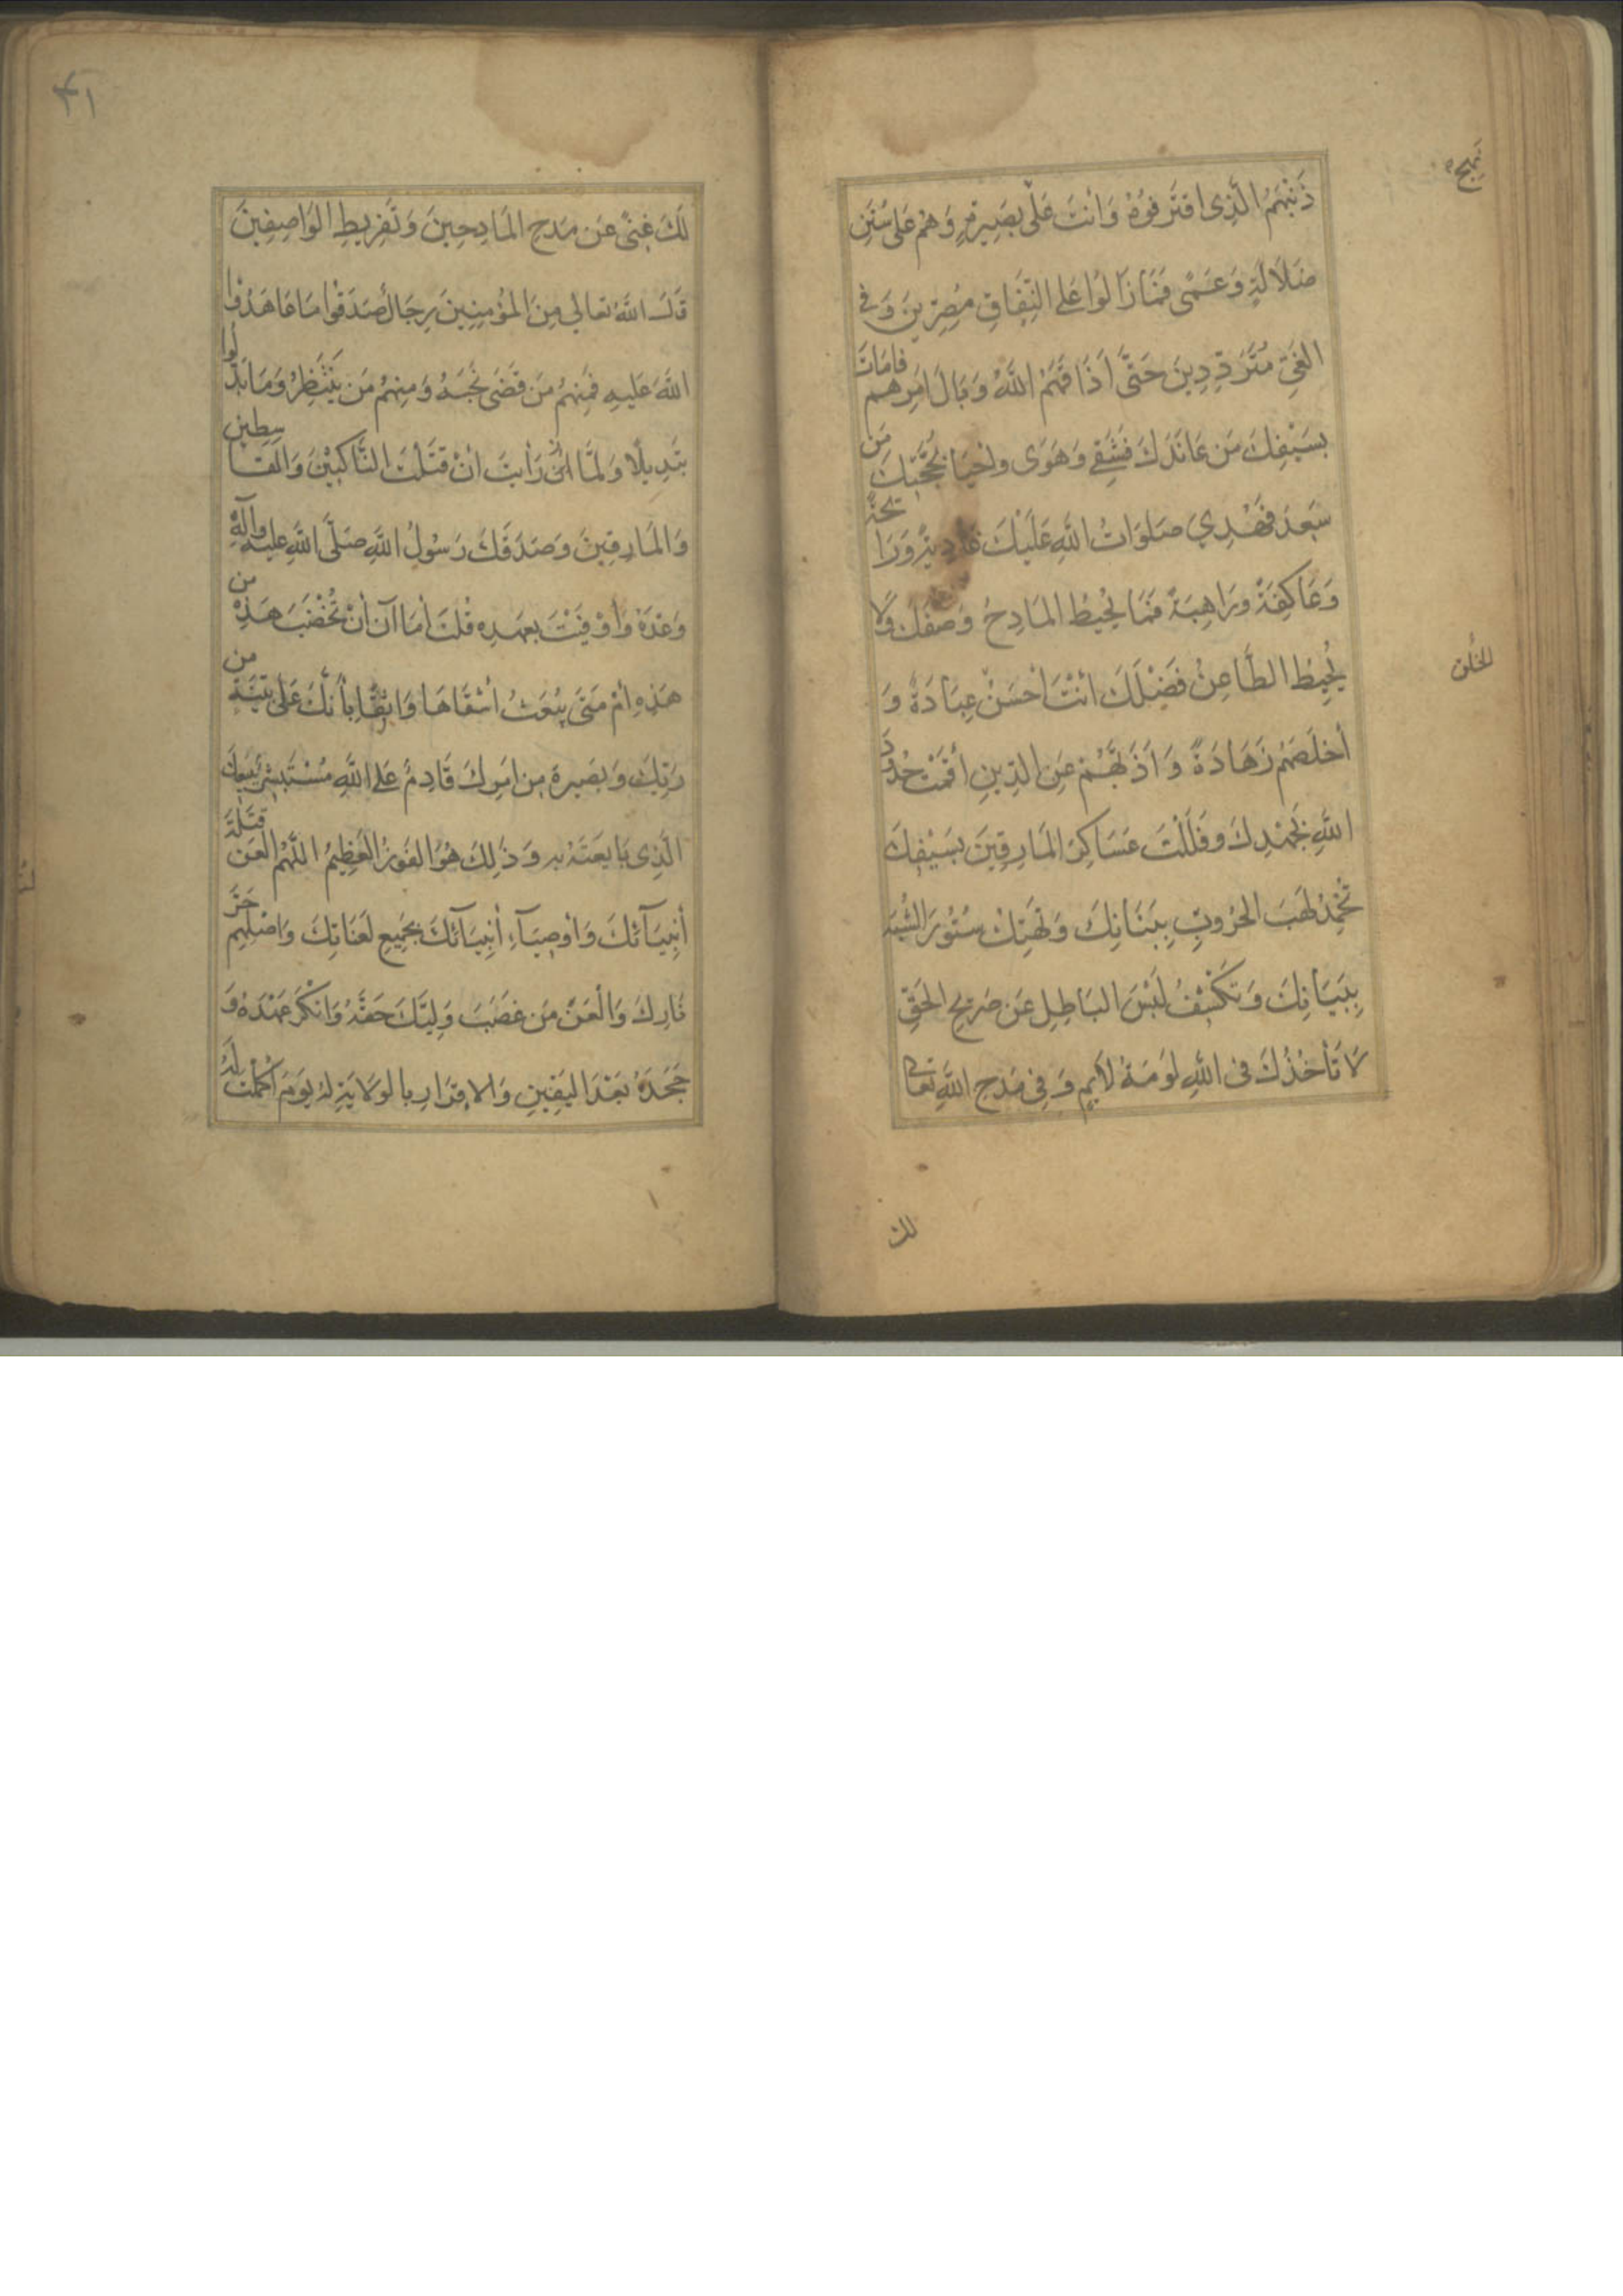 نهج
ذَنْبَهُمُ الَّذِى اقتَرَفوُهُ وَانْتَ عَلٰى بَصِيرةٍ وَهُمْ عَلى سُنَنِ
ضَلَالَةٍ وَعَمًى فَمَازَالوُا عَلى النِّفَاقِ مُصِرّينَ وَفى
الغَىِّ مُتَرَدِّدِينَ حَتّىٰ اَذَاقَهُمْ اللَّهُ وَبَالَ اَمرِهم فَامَاتَ
بِسَيْفِكَ مَن عَانَدَكَ فَشَقِى وَهَوَى واحيَا بحُجَّتِكَ مَن
سَعِدَ فَهُدِي صَلوَاتُ اللَّهِ عَلَيْكَ غَادِيةً وَرَائحَةً
وَعَاكِفَةً وذَاهِبَةً فَمَا يُحِيطُ المَادِحُ وَصفَكَ وَلَا
يُحِبطُ الطَّاعِنُ فَضْلَكَ انْتَ اَحْسَنُ عِبَادَةً وَ
الخلق
أخلَصَهُم زَهَادَةً وَاَذَبَّهُمْ عَنِ الدِّينِ أقَمْتَ حُدُودَ
اللَّهِ بجُهْدِكَ وفَلَلْتَ عَسَاكِرَ المَارِقِينَ بِسَيْفِكَ
تُخْمِدُ لَهَبَ الحُرُوبِ بِبَنَانِكَ وَتَهْتِكُ سُتُورَ الشُّبَهِ
بِبَيَانِكَ وَتَكْشِفُ لَبْسَ البَاطِلِ عَن صَرِيحِ الحَقِّ
لَا تَأخُذُكَ فى اللَّهِ لَومَةُ لَائِمٍ وَفِى مَدحِ اللَّهِ تَعَالى
لك
٤١
لَكَ غِنىً عَن مَدحِ المَادِحِينَ وَتَقرِيظِ الوَاصِفِينَ
قَالَ اللَّهُ تعالي مِنَ المُؤمِنِينَ رِجَالٌ صَدَقُوا مَا عَاهَدُوا
اللَّهَ عَلَيهِ فَمِنهُم مَن قَضَى نَحْبَهُ وَمِنهُم مَن يَنْتَظِرُ وَمَا بَدَّلُوا
تَبدِيلًا وَلَمَّا رَأيتَ انْ قَتَلْتَ النَّاكِثِيْنَ وَالقَاسِطِين
وَالمَارِقِينَ وَصَدَقَكَ رَسُولُ اللَّهِ صَلَّى اللَّهِ عليه وآله
وَعْدَهُ وَأوْفَيْتَ بعَهدِه قُلتَ أمَا آنَ أنْ تُخْضَبَ هَذِهِ من
هَذِهِ أمْ مَتَى يُبْعَثُ أشْقَاهَا وَاثِقًا بأنَّكَ عَلى بَيِّنَةٍ من
رَبِّكَ وَبَصِيرة مِن امرِكَ قَادِمٌ عَلى اللَّهِ مُسْتَبشِرٌ بِبَيعِكَ
الَّذِى بَايَعتَهُ بِه وَذٰلِكَ هُوَ الفَوزُ العَظِيمُ اللَّهُم العَن قَتَلَةَ
أنبِيَآئكَ وَاوْصِيَآءِ أنبِيَآئكَ بجَمِيعِ لَعَنَاتِكَ وَاصْلِهِم حَرَّ
نَارِكَ وَالْعَنْ مَن غَصَبَ وَلِيَّكَ حَقَّهُ وَانْكَرَ عَهْدَهُ وَ
جَحَدَهُ بَعْدَ اليَقِينِ وَالاِقرَارِ بالوَلَايَةِ لهُ يَومَ أكْمَلْتَ لَهُ